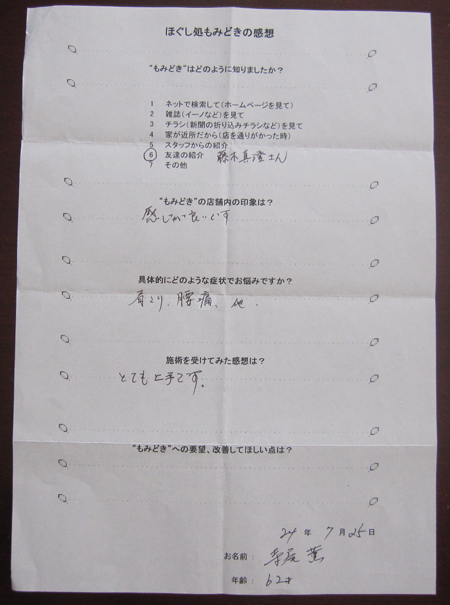 ほぐし処もみどきの感想
"もみどき"はどのように知りましたか?
1 ネットで検索して(ホームページを見て)
2 雑誌(イーノなど)を見て
3 チラシ(新聞の折り込みチラシなど)を見て
4 家が近所だから(店を通りがかった時)
5 スタッフからの紹介
6 友達の紹介 藤木真澄さん
7 その他
"もみどき"の店舗内の印象は?
感じが良いです
具体的にどのような症状でお悩みですか?
肩こり、腰痛、他.
施術を受けてみた感想は?
とても上手です。
"もみどき"への要望、改善してほしい点は?
24 年 7 月 25 日
お名前: 薫
年齢: 62才